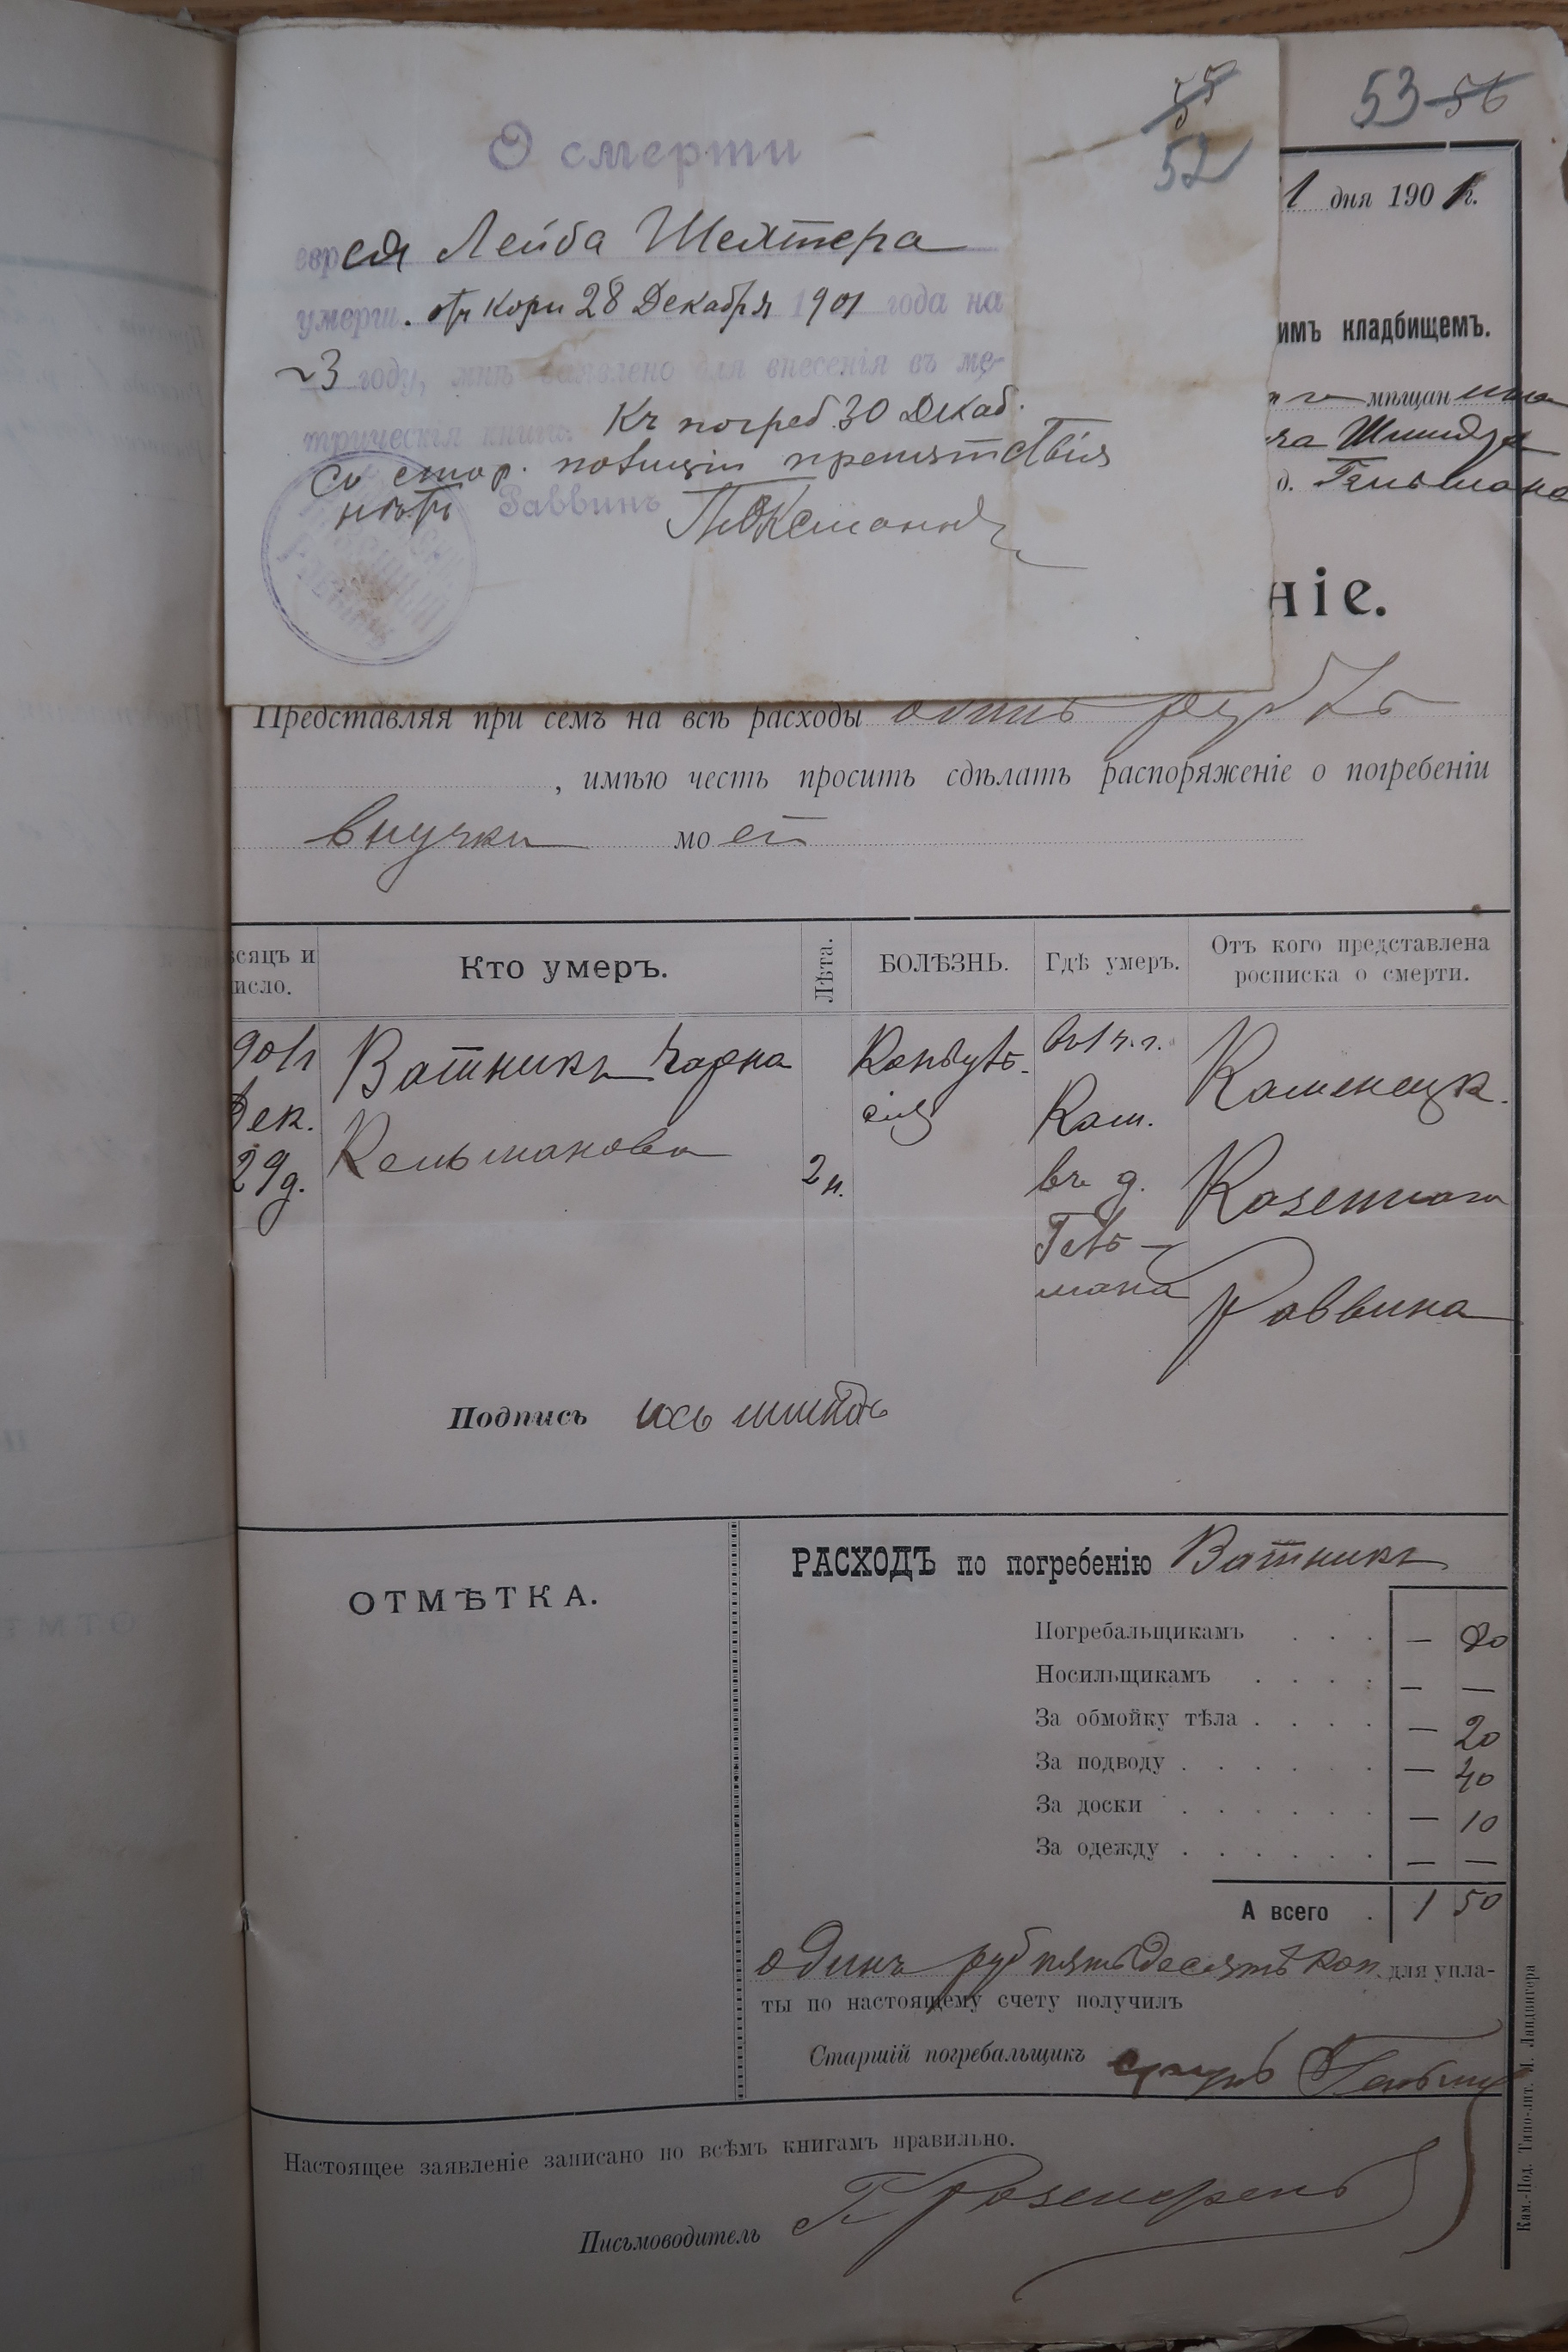 55
52
О смерти
еврея Лейба Шехтера
умерш. отъ кори 28 Декабря 1901 года на
3 году, мнѣ заявлено для внесенія въ ме-
трическія книги. Къ погреб. 30 Декаб.
со стор. полиціи препятствія
нѣтъ Раввинъ
53 56
1 дня 1901 г.
имъ кладбищемъ.
мѣщан
Шмидта
д. Гельмана
ніе.
Представляя при семъ на всѣ расходы одинъ рубль
, имѣю честь просить сдѣлать распоряженіе о погребеніи
внучки моей
сяцъ и
исло.
Кто умеръ.
Лѣта.
БОЛѢЗНЬ.
Гдѣ умеръ.
Отъ кого представлена
росписка о смерти.
901 г
Дек.
29 д.
Ватникъ Чарна
Кельманова
2 н.
Конвуль-
сія
Кам.
въ д.
Гель-
мана
Каменецк.
Казеннаго
Раввина
Подпись Ись шмидъ
ОТМѢТКА.
РАСХОДЪ по погребенію Ватникъ
Погребальщикамъ . . . — 80
Носильщикамъ . . . . — —
За обмойку тѣла . . . . — 20
За подводу . . . . . . — 40
За доски . . . . . . — 10
За одежду . . . . . . — —
А всего . 1 50
одинъ руб пятьдесятъ коп. для упла-
ты по настоящему счету получилъ
Старшій погребальщикъ
Настоящее заявленіе записано по всѣмъ книгамъ правильно.
Письмоводитель Г Розенгренъ
Кам.-Под. Типо-лит. М. Ландвигера